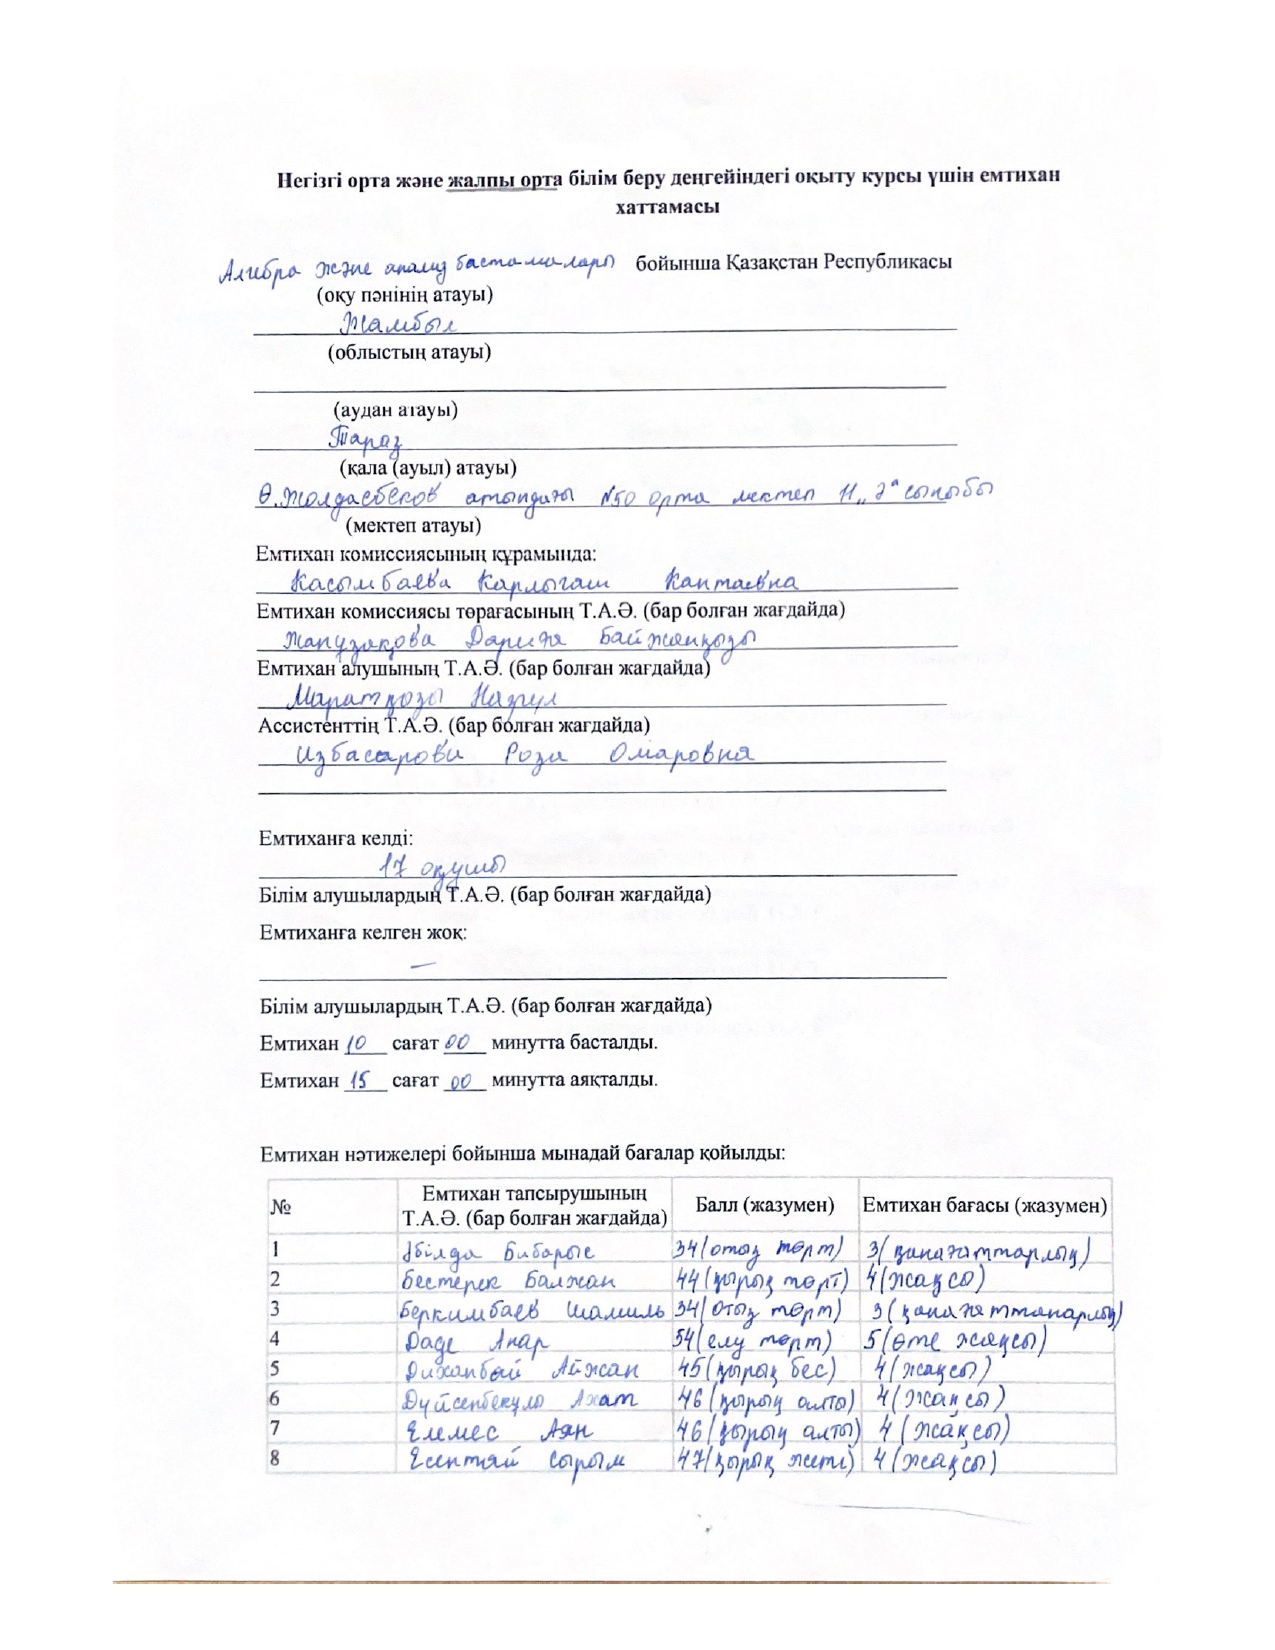 Негізгі орта және жалпы орта білім беру деңгейіндегі оқыту курсы үшін емтихан
хаттамасы
Алгибра және анализ бастамалары бойынша Қазақстан Республикасы
(оқу пәнінің атауы)
Жамбыл
(облыстың атауы)
(аудан атауы)
Тараз
(қала (ауыл) атауы)
Ө.Жолдасбеков атындағы №50 орта мектеп 11 „Ә" сыныбы
(мектеп атауы)
Емтихан комиссиясының құрамында:
Касымбаева Карлыгаш Каптаевна
Емтихан комиссиясы төрағасының Т.А.Ә. (бар болған жағдайда)
Жапұзақова Дариға Байжанқызы
Емтихан алушының Т.А.Ә. (бар болған жағдайда)
Маратқызы Назгул
Ассистенттің Т.А.Ә. (бар болған жағдайда)
Избасарова Роза Омаровна
Емтиханға келді:
17 оқушы
Білім алушылардың Т.А.Ә. (бар болған жағдайда)
Емтиханға келген жоқ:
—
Білім алушылардың Т.А.Ә. (бар болған жағдайда)
Емтихан 10 сағат 00 минутта басталды.
Емтихан 15 сағат 00 минутта аяқталды.
Емтихан нәтижелері бойынша мынадай бағалар қойылды:
№ Емтихан тапсырушының Т.А.Ә. (бар болған жағдайда) Балл (жазумен) Емтихан бағасы (жазумен)
1 Әбілда Бибарыс 34 (отыз төрт) 3 (қанағаттарлық)
2 Бестерек Балжан 44 (қырық төрт) 4 (жақсы)
3 Беркимбаев Шамиль 34 (отыз төрт) 3 (қанағаттанарлық)
4 Даде Анар 54 (елу төрт) 5 (өте жақсы)
5 Диханбай Айжан 45 (қырық бес) 4 (жақсы)
6 Дүйсенбекұлы Ахат 46 (қырық алты) 4 (жақсы)
7 Елемес Аян 46 (қырық алты) 4 (жақсы)
8 Есентай Сырым 47 (қырық жеті) 4 (жақсы)